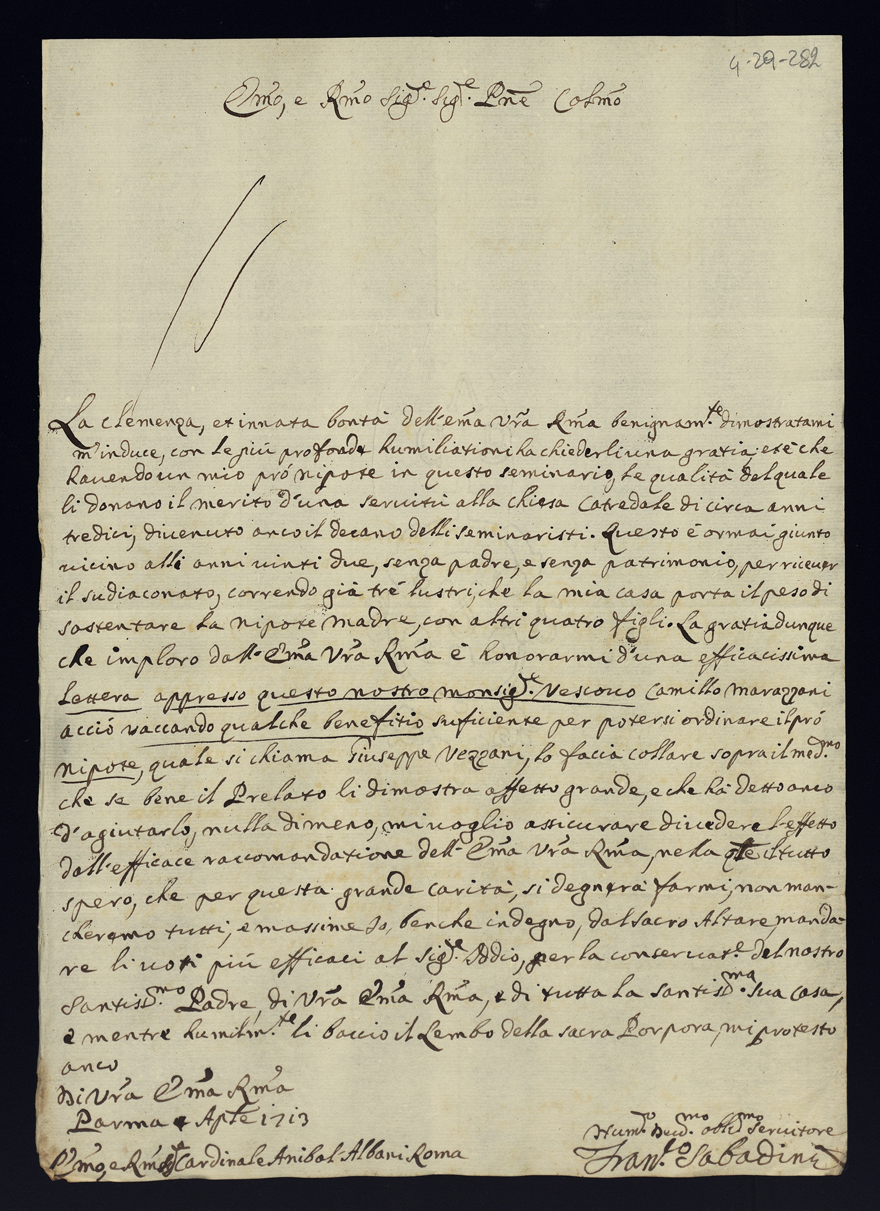 4-29-282
Emo, e Rmo Sig.e Sig.e Pñe Colmo
La clemenza, et innata bontà dell'Ema Vra Rma benignam.te dimostratami
m'induce, con le più profonde humiliationi ha chiederli una gratia, et è che
havendo un mio pró nipote in questo seminario, le qualità del quale
li donano il merito d'una servitù alla chiesa Catredale di circa anni
tredici, divenuto anco il decano delli seminaristi. Questo è ormai giunto
vicino alli anni vinti due, senza padre, e senza patrimonio, per ricever
il sudiaconato, correndo già trè lustri, che la mia casa porta il peso di
sostentare la nipote Madre, con altri quatro figli. La gratia dunque
che imploro dall'Ema Vra Rma è honorarmi d'una efficacissima
lettera appresso questo nostro monsig.e Vescovo Camillo Marazzani
acciò vaccando qualche benefitio suficiente per potersi ordinare il pró
nipote, quale si chiama Giuseppe Vezzani, lo facia collare sopra il med.mo
che se bene il Prelato li dimostra affetto grande, e che hà detto anco
d'agiutarlo, nulla di meno, mi voglio assicurare di vedere l'effetto
dall'efficace raccomandatione dell'Ema Vra Rma, nella qle il tutto
spero, che per questa grande carità, si degnerà farmi, non man-
cheremo tutti, e massime Io, benche indegno, dal sacro Altare, manda-
re li voti più efficaci al Sig.e Iddio, per la conservat.e del nostro
Santiss.mo Padre, di Vra Ema Rma, e di tutta la santiss.ma sua Casa,
e mentre humilm.te li baccio il Lembo della sacra Porpora, mi protesto
anco
Di Vra Ema Rma
Parma Aple 1713
Hum.o Dev.mo obl.mo Servitore
Emo, e Rmo Sig.e Cardinale Anibal Albani Roma
Fran.co Sabadini